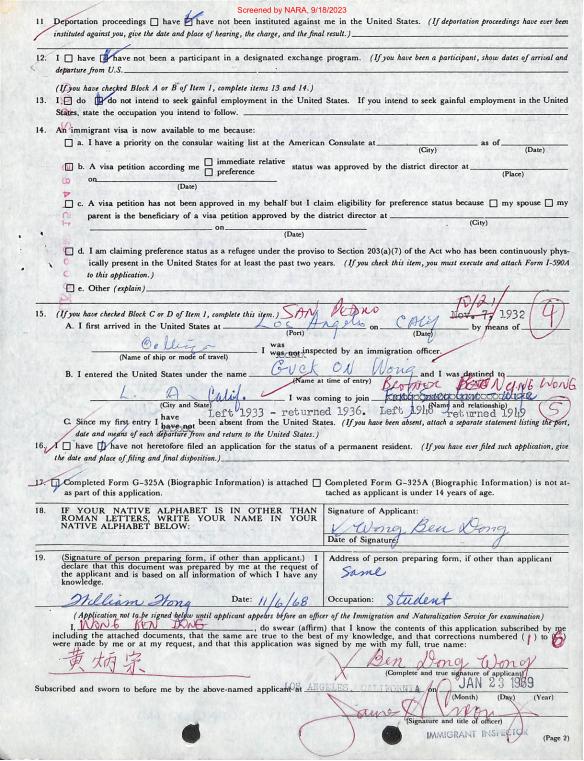 Screened by NARA, 9/18/2023
11 Deportation proceedings ☐ have ☑ have not been instituted against me in the United States. (If deportation proceedings have ever been
instituted against you, give the date and place of hearing, the charge, and the final result.)
12. I ☐ have ☑ have not been a participant in a designated exchange program. (If you have been a participant, show dates of arrival and
departure from U.S.
(If you have checked Block A or B of Item 1, complete items 13 and 14.)
13. I ☐ do ☑ do not intend to seek gainful employment in the United States. If you intend to seek gainful employment in the United
States, state the occupation you intend to follow.
14. An immigrant visa is now available to me because:
☐ a. I have a priority on the consular waiting list at the American Consulate at as of
(City) (Date)
☐ b. A visa petition according me ☐ immediate relative ☐ preference status was approved by the district director at
(Place)
on
(Date)
☐ c. A visa petition has not been approved in my behalf but I claim eligibility for preference status because ☐ my spouse ☐ my
parent is the beneficiary of a visa petition approved by the district director at
(City)
on
(Date)
☐ d. I am claiming preference status as a refugee under the proviso to Section 203(a)(7) of the Act who has been continuously phys-
ically present in the United States for at least the past two years. (If you check this item, you must execute and attach Form I-590A
to this application.)
☐ e. Other (explain)
15. (If you have checked Block C or D of Item 1, complete this item.) SAN PEDRO 12/21
A. I first arrived in the United States at Los Angeles on Calif Nov. 7, 1932 by means of 4
(Port) (Date)
I was was not inspected by an immigration officer.
(Name of ship or mode of travel)
B. I entered the United States under the name Guck On Wong and I was destined to
(Name at time of entry) Brother NUNG WONG
L. A. Calif. I was coming to join
(City and State) (Name and relationship)
Left 1933 - returned 1936. Left 1948 returned 1949 5
C. Since my first entry I have have not been absent from the United States. (If you have been absent, attach a separate statement listing the port,
date and means of each departure from and return to the United States.)
16. I ☐ have ☑ have not heretofore filed an application for the status of a permanent resident. (If you have ever filed such application, give
the date and place of filing and final disposition.)
17. ☑ Completed Form G-325A (Biographic Information) is attached ☐ Completed Form G-325A (Biographic Information) is not at-
as part of this application. tached as applicant is under 14 years of age.
18. IF YOUR NATIVE ALPHABET IS IN OTHER THAN
ROMAN LETTERS, WRITE YOUR NAME IN YOUR
NATIVE ALPHABET BELOW:
Signature of Applicant:
Wong Ben Dong
Date of Signature:
19. (Signature of person preparing form, if other than applicant.) I
declare that this document was prepared by me at the request of
the applicant and is based on all information of which I have any
knowledge.
William Wong Date: 11/6/68
Address of person preparing form, if other than applicant
Same
Occupation: Student
(Application not to be signed below until applicant appears before an officer of the Immigration and Naturalization Service for examination)
I, WONG BEN DONG, do swear (affirm) that I know the contents of this application subscribed by me
including the attached documents, that the same are true to the best of my knowledge, and that corrections numbered (1) to 6
were made by me or at my request, and that this application was signed by me with my full, true name:
黄炳宗
Ben Dong Wong
(Complete and true signature of applicant)
Subscribed and sworn to before me by the above-named applicant at LOS ANGELES, CALIFORNIA on JAN 23 1969
(Month) (Day) (Year)
(Signature and title of officer)
IMMIGRANT INSPECTOR
(Page 2)